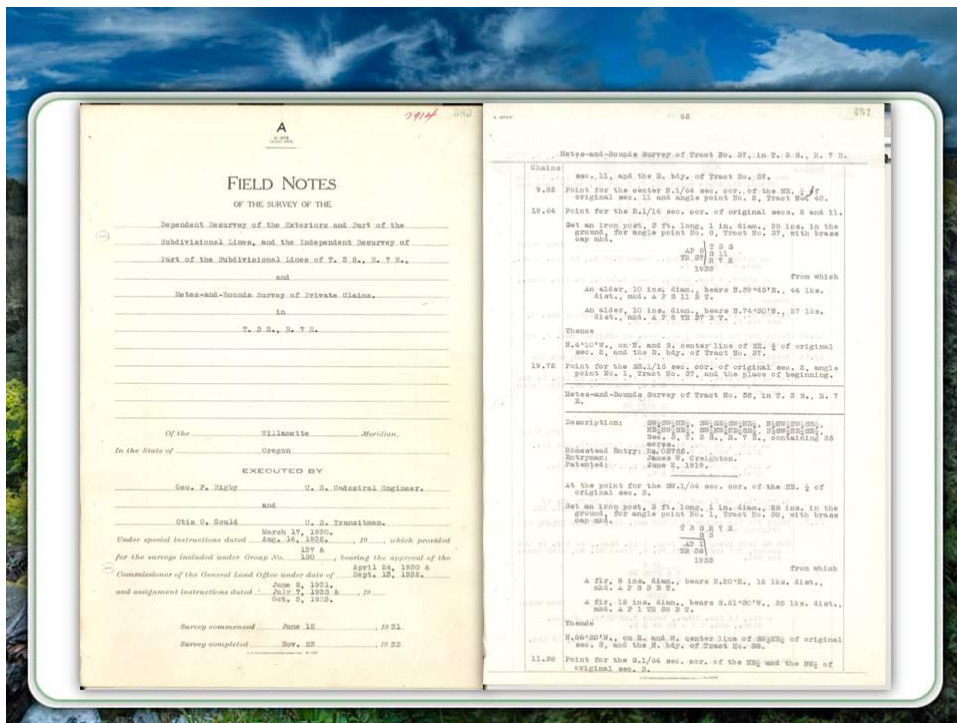 7914 583
A
FIELD NOTES
OF THE SURVEY OF THE
Dependent Resurvey of the Exteriors and Part of the
Subdivisional Lines, and the Independent Resurvey of
Part of the Subdivisional Lines of T. 3 S., R. 7 E.,
and
Metes-and-Bounds Survey of Private Claims.
in
T. 3 S., R. 7 E.
Of the Willamette Meridian,
In the State of Oregon
EXECUTED BY
Geo. F. Rigby U. S. Cadastral Engineer.
and
Otis O. Gould U. S. Transitman.
March 17, 1930.
Under special instructions dated Aug. 16, 1932. , 19 , which provided
157 &
for the surveys included under Group No. 190 , bearing the approval of the
April 24, 1930 &
Commissioner of the General Land Office under date of Sept. 13, 1932.
June 2, 1931.
and assignment instructions dated July 7, 1932 & , 19
Oct. 3, 1932.
Survey commenced June 12 , 1931
Survey completed Nov. 23 , 1933
65
Metes-and-Bounds Survey of Tract No. 37, in T. 3 S., R. 7 E.
Chains
sec. 11, and the E. bdy. of Tract No. 37.
Point for the center E.1/64 sec. cor. of the NE. ¼ of
original sec. 11 and angle point No. 2, Tract No. 40.
Point for the E.1/16 sec. cor. of original secs. 2 and 11.
Set an iron post, 3 ft. long, 1 in. diam., 26 ins. in the
ground, for angle point No. 6, Tract No. 37, with brass
cap mkd.
T 3 S
S 11
TR 37 R 7 E
1933
from which
An alder, 10 ins. diam., bears
dist., mkd. A P S 11 B T.
An alder, 10 ins. diam., bears
dist., mkd. A P 6 TR 37 B T.
Thence
N.4°10'W., on N. and S. center line of SE. ¼ of original
sec. 2, and the E. bdy. of Tract No. 37.
Point for the SE.1/16 sec. cor. of original sec. 2, angle
point No. 1, Tract No. 37, and the place of beginning.
Metes-and-Bounds Survey of Tract No. 38, in T. 3 S., R. 7
E.
Description:
Sec. 3, T. 3 S., R. 7 E., containing 35
acres.
Homestead Entry:
Entryman: James W. Creighton.
Patented: June 2, 1919.
At the point for the SW.1/64 sec. cor. of the NE. ¼ of
original sec. 3.
Set an iron post, 3 ft. long, 1 in. diam., 26 ins. in the
ground, for angle point No. 1, Tract No. 38, with brass
cap mkd.
T 3 S R 7 E
S 3
AP 1
TR 38
1933
from which
A fir, 8 ins. diam., bears
mkd. A P S 3 B T.
A fir, 12 ins. diam., bears
mkd. A P 1 TR 38 B T.
Thence
on E. and W. center line of of original
sec. 3, and the N. bdy. of Tract No. 38.
Point for the of
original sec. 3.